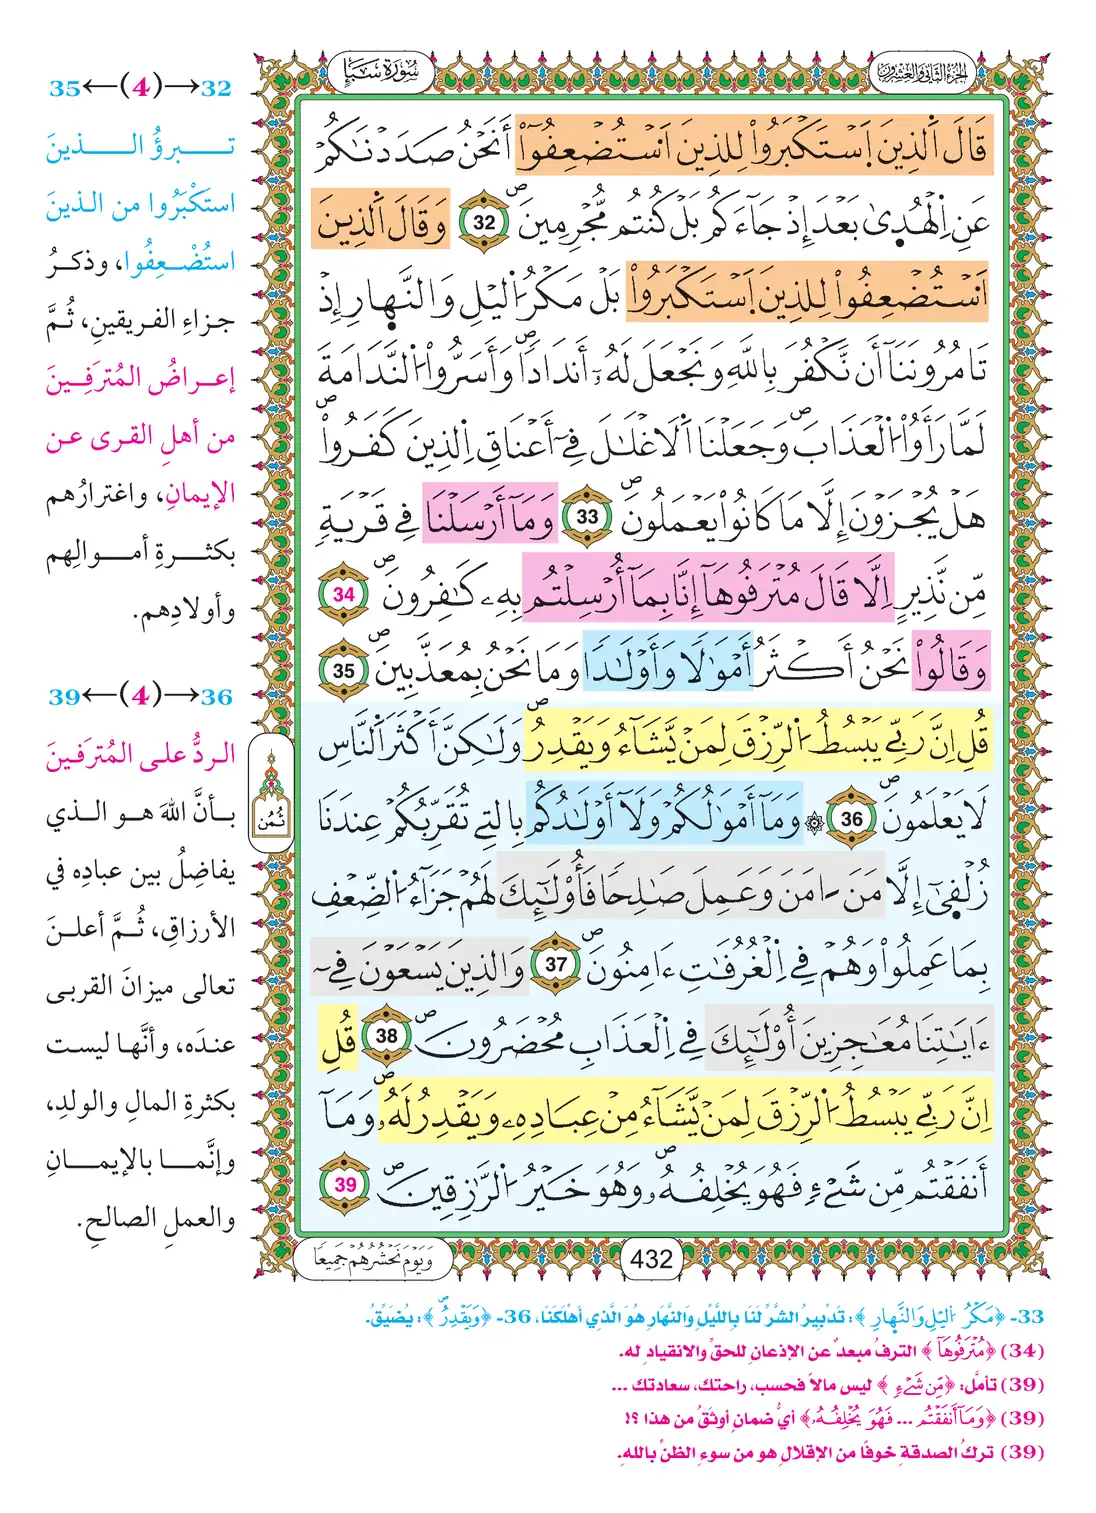 الجزء الثاني والعشرون
سُورَةُ سَبَإٍ
قَالَ اَلذِينَ اَسْتَكْبَرُواْ لِلذِينَ اَسْتُضْعِفُوٓاْ أَنَحْنُ صَدَدْنَٰكُمْ
عَنِ اِلْهُد۪يٰ بَعْدَ إِذْ جَآءَكُم بَلْ كُنتُم مُّجْرِمِينَۖ 32 وَقَالَ اَلذِينَ
اَسْتُضْعِفُواْ لِلذِينَ اَسْتَكْبَرُواْ بَلْ مَكْرُ اُ۬ليْلِ وَالنَّه۪ارِ إِذْ
تَامُرُونَنَآ أَن نَّكْفُرَ بِاللَّهِ وَنَجْعَلَ لَهُۥٓ أَندَاداٗۖ وَأَسَرُّواْ اُ۬لنَّدَامَةَ
لَمَّا رَأَوُاْ اُ۬لْعَذَابَۖ وَجَعَلْنَا اَ۬لَاغْلَٰلَ فِےٓ أَعْنَاقِ اِلذِينَ كَفَرُواْۖ
هَلْ يُجْزَوْنَ إِلَّا مَا كَانُواْ يَعْمَلُونَۖ 33 وَمَآ أَرْسَلْنَا فِے قَرْيَةٖ
مِّن نَّذِيرٍ اِلَّا قَالَ مُتْرَفُوهَآ إِنَّا بِمَآ أُرْسِلْتُم بِهِۦ كَٰفِرُونَۖ 34
وَقَالُواْ نَحْنُ أَكْثَرُ أَمْوَٰلاٗ وَأَوْلَٰداٗ وَمَا نَحْنُ بِمُعَذَّبِينَۖ 35
قُلِ اِنَّ رَبِّے يَبْسُطُ اُ۬لرِّزْقَ لِمَنْ يَّشَآءُ وَيَقْدِرُۖ وَلَٰكِنَّ أَكْثَرَ اَ۬لنَّاسِ
لَا يَعْلَمُونَۖ 36 ۞ وَمَآ أَمْوَٰلُكُمْ وَلَآ أَوْلَٰدُكُم بِالتِے تُقَرِّبُكُمْ عِندَنَا
زُلْف۪يٰٓ إِلَّا مَنَ اٰمَنَ وَعَمِلَ صَٰلِحاٗ فَأُوْلَٰٓئِكَ لَهُمْ جَزَآءُ اُ۬لضِّعْفِ
بِمَا عَمِلُواْ وَهُمْ فِے اِ۬لْغُرُفَٰتِ ءَامِنُونَۖ 37 وَالذِينَ يَسْعَوْنَ فِےٓ
ءَايَٰتِنَا مُعَٰجِزِينَ أُوْلَٰٓئِكَ فِے اِ۬لْعَذَابِ مُحْضَرُونَۖ 38 قُلِ
اِنَّ رَبِّے يَبْسُطُ اُ۬لرِّزْقَ لِمَنْ يَّشَآءُ مِنْ عِبَادِهِۦ وَيَقْدِرُ لَهُۥۖ وَمَآ
أَنفَقْتُم مِّن شَےْءٖ فَهُوَ يُخْلِفُهُۥۖ وَهُوَ خَيْرُ اُ۬لرَّٰزِقِينَۖ 39
ثُمُن
432
وَيَوْمَ نَحْشُرُهُمْ جَمِيعاٗ
35←(4)→32
تبرؤُ الذينَ
استَكْبَرُوا من الذينَ
استُضْعِفُوا، وذكرُ
جزاءِ الفريقينِ، ثُمَّ
إعراضُ المُترَفِينَ
من أهلِ القرى عن
الإيمانِ، واغترارُهم
بكثرةِ أموالِهم
وأولادِهم.
39←(4)→36
الردُّ على المُترَفينَ
بأنَّ اللهَ هو الذي
يفاضِلُ بين عبادِه في
الأرزاقِ، ثُمَّ أعلنَ
تعالى ميزانَ القربى
عندَه، وأنَّها ليست
بكثرةِ المالِ والولدِ،
وإنَّما بالإيمانِ
والعملِ الصالحِ.
33- ﴿مَكْرُ اُ۬ليْلِ وَالنَّه۪ارِ﴾: تَدْبِيرُ الشَّرِّ لَنَا بِاللَّيْلِ وَالنَّهَارِ هُوَ الَّذِي أَهْلَكَنَا، 36- ﴿وَيَقْدِرُۖ﴾: يُضَيِّقُ.
(34) ﴿مُتْرَفُوهَآ﴾ الترفُ مبعدٌ عن الإذعانِ للحقِّ والانقيادِ له.
(39) تأمَّل: ﴿مِّن شَےْءٖ﴾ ليس مالاً فحسب، راحتك، سعادتك ...
(39) ﴿وَمَآ أَنفَقْتُم ... فَهُوَ يُخْلِفُهُۥ﴾ أيُّ ضمانٍ أوثقُ من هذا ؟!
(39) تركُ الصدقةِ خوفًا من الإقلالِ هو من سوءِ الظنِّ باللهِ.